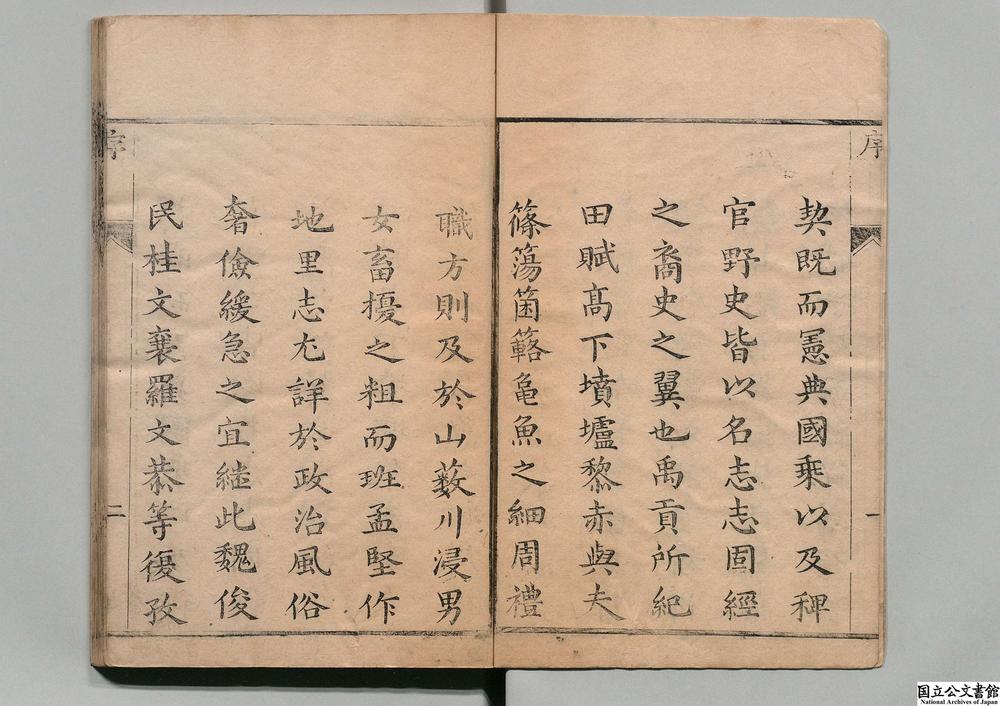 序
一
契既而憲典國乗以及稗
官野史皆以名志志固經
之裔史之翼也禹貢所紀
田賦高下墳壚黎赤與夫
篠簜箘簵龜魚之細周禮
職方則及於山藪川浸男
女畜擾之粗而班孟堅作
地里志尤詳於政治風俗
奢儉緩急之宜繼此魏俊
民桂文襄羅文恭等復孜
序
二
国立公文書館
National Archives of Japan